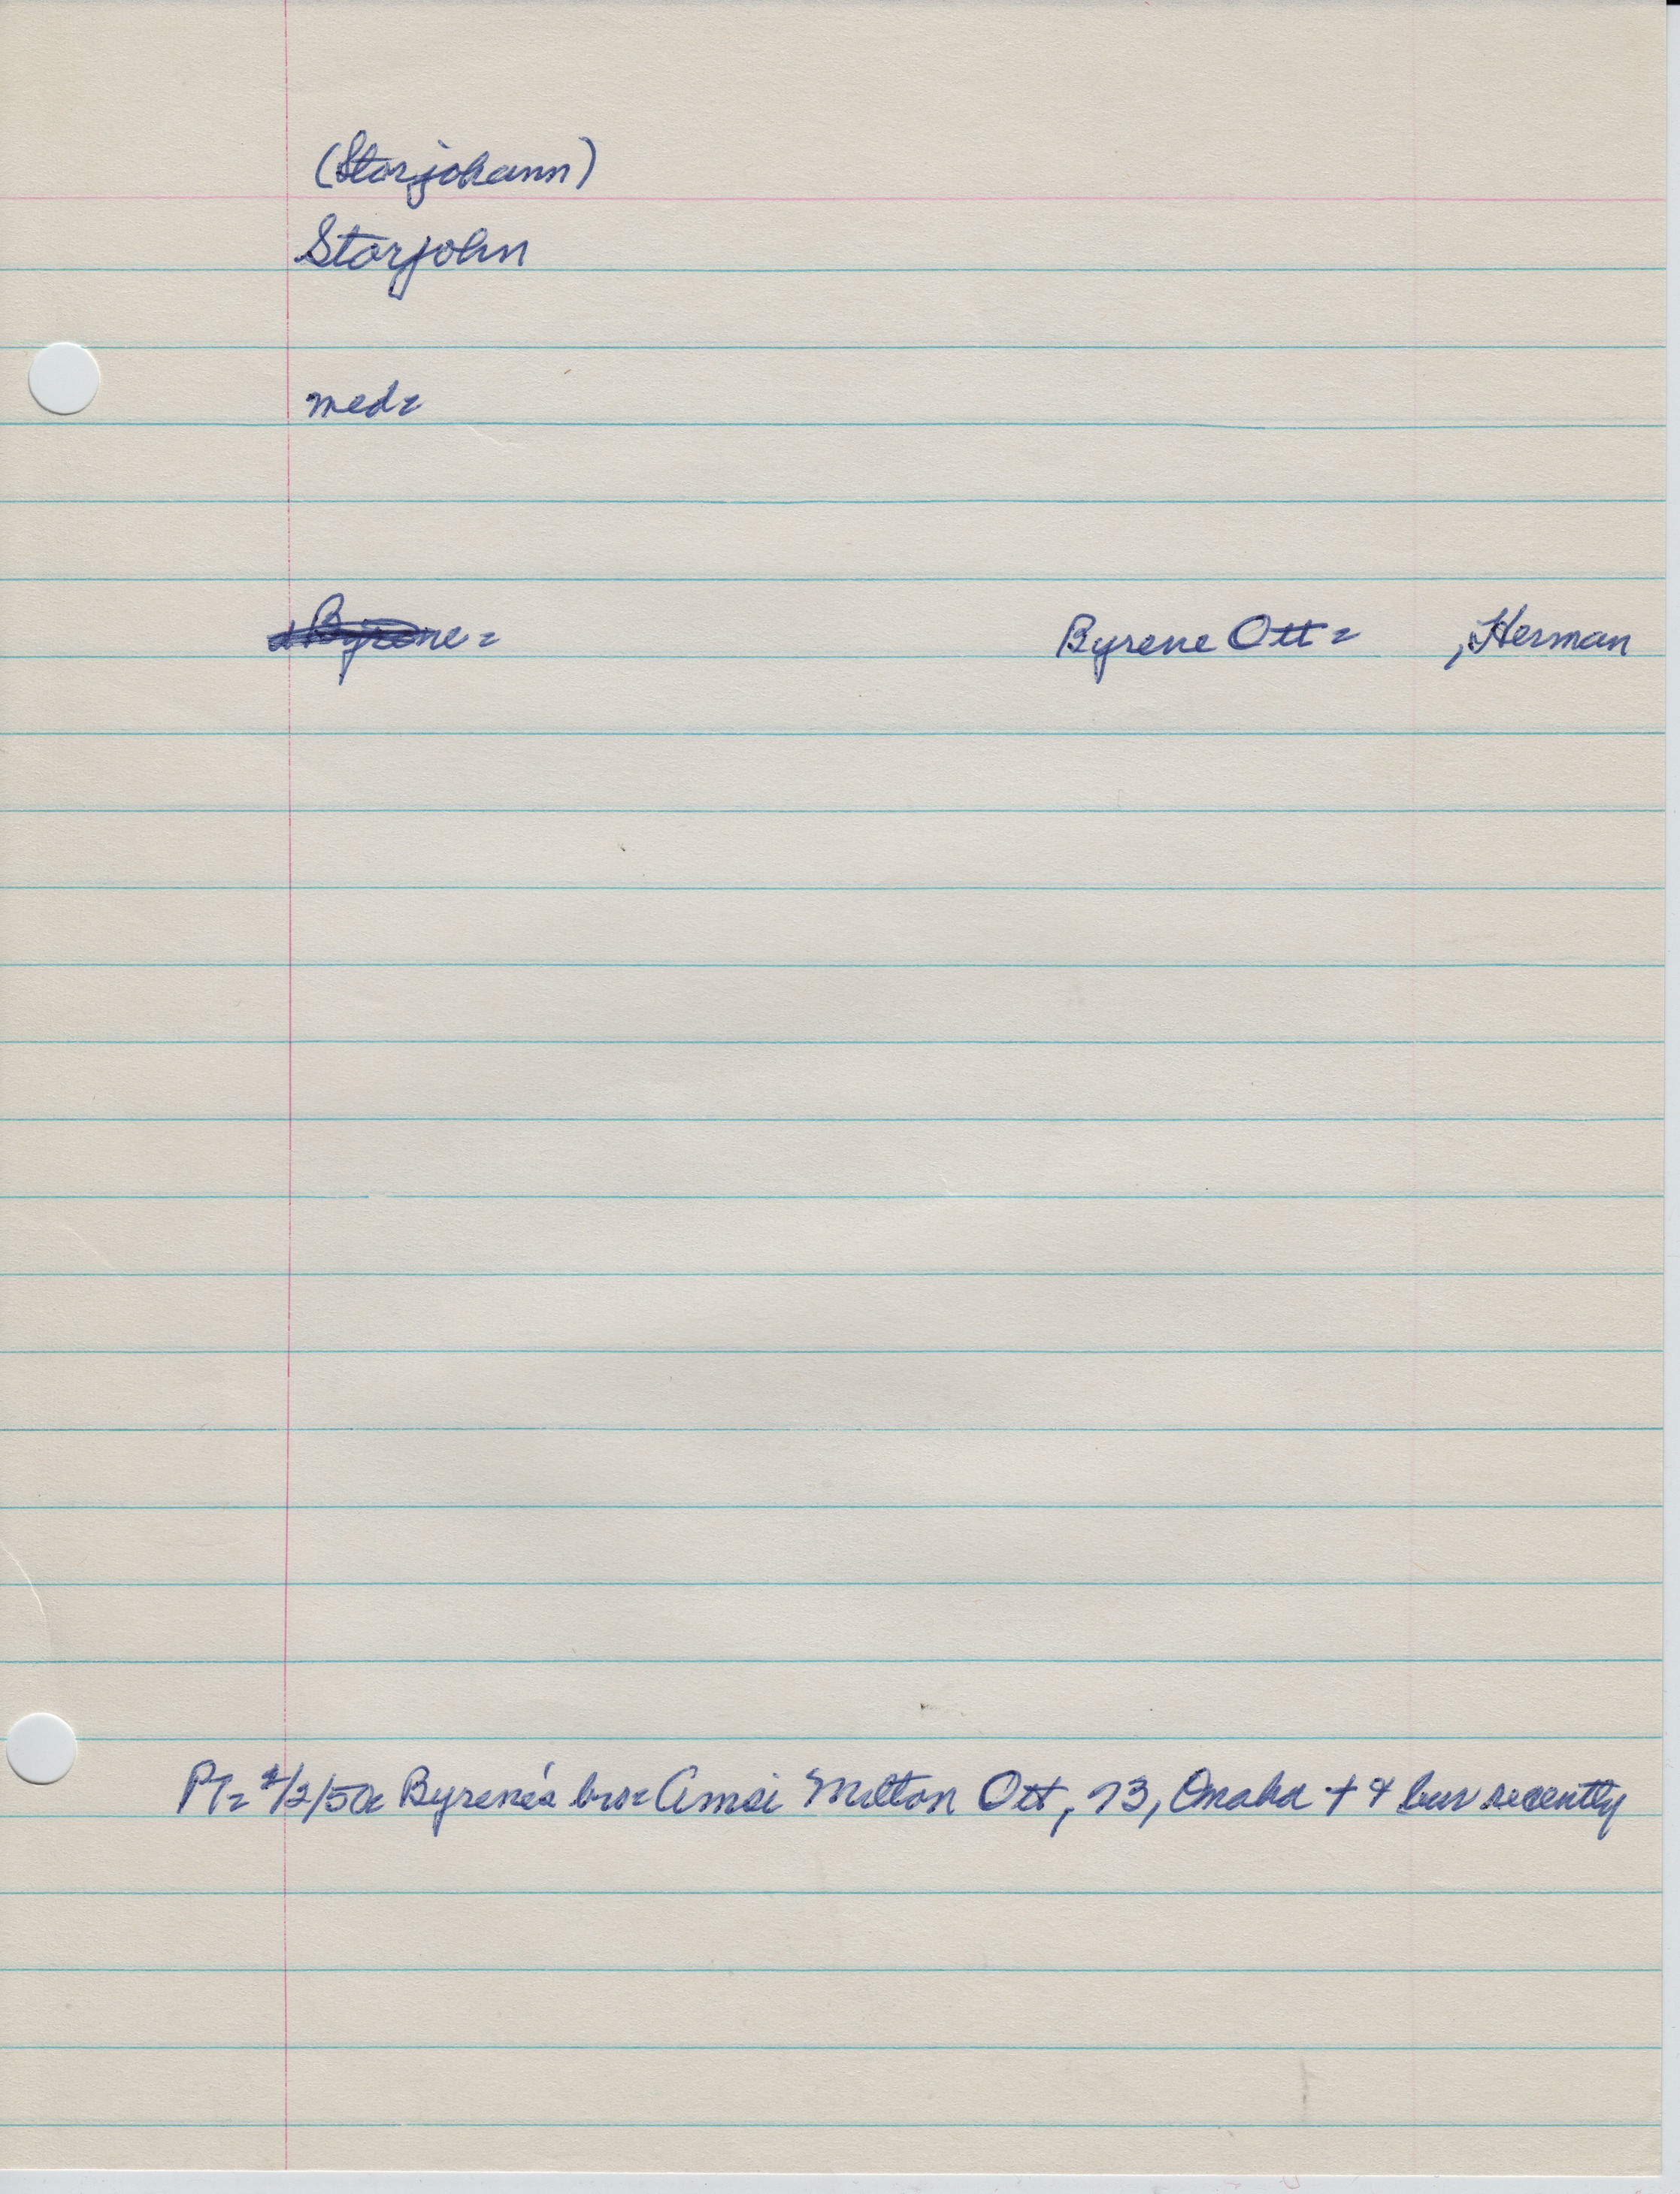 (Storjohann)
Storjohn
med=
Byrene= Byrene Ott= , Herman
Pl= 2/2/50= Byrene's bro= Amsi Milton Ott, 73, Omaha + & bur recently